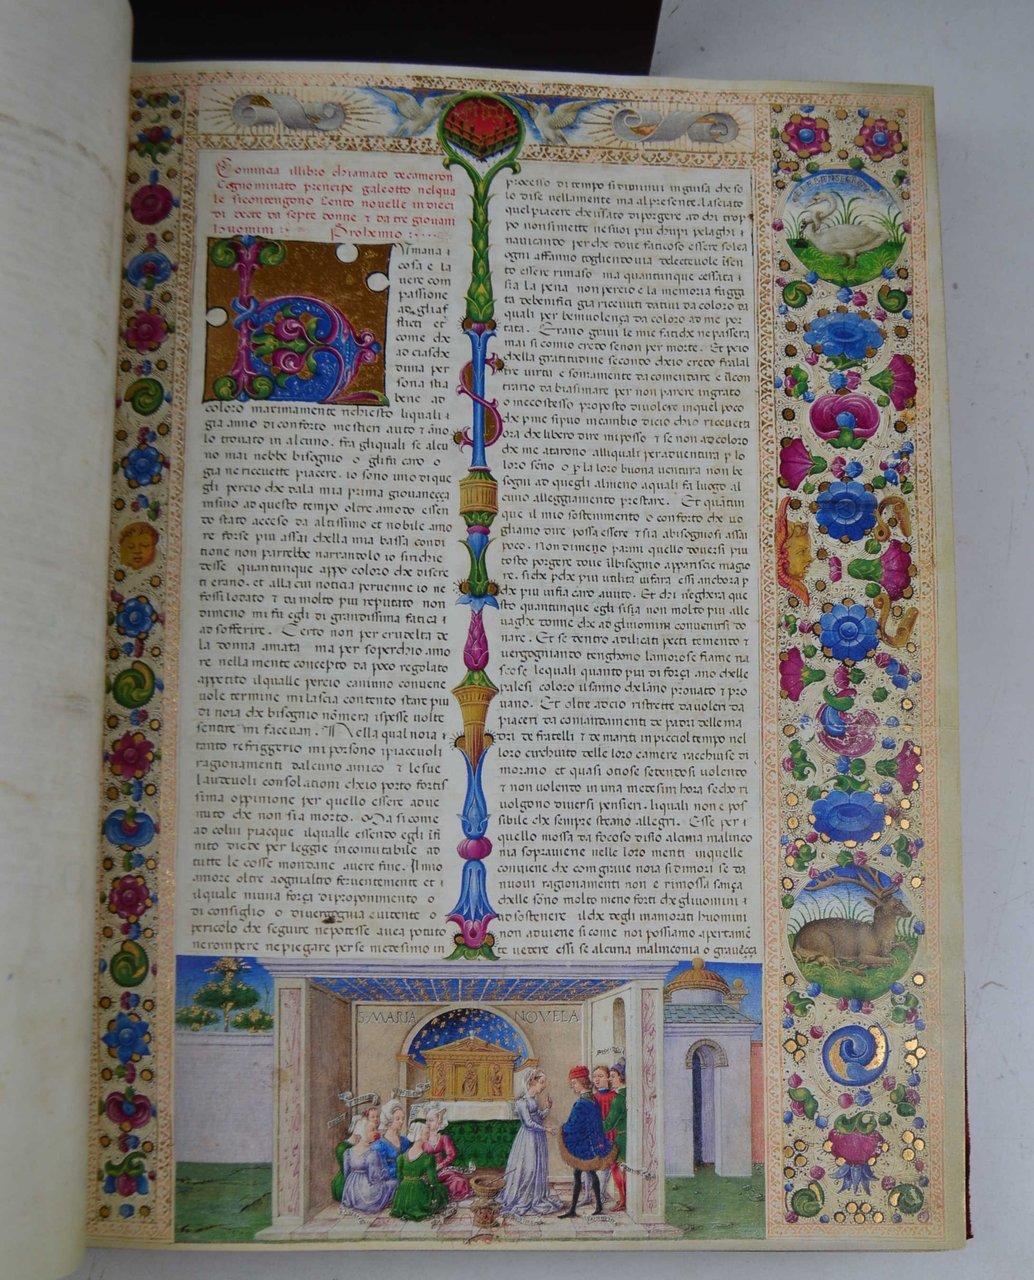 Comincia illibro chiamato decameron
Cognominato prencipe galeotto nelqua
le sicontengono Cento nouelle in dieci
di decte da septe donne τ da tre giouani
huomini : Prohemio :
Humana i
cosa e la
uere com
passione
ad gliaf
flicti et
come che
ad ciasche
duna per
sona stia
bene ad
coloro maximamente richiesto liquali i
gia anno di conforto mestieri auto τ āno
lo trouato in alcuno. fra gliquali se alcu
no mai nebbe bisogno o gli fu caro o
gia ne riceuette piacere. io sono uno di que
gli percio che dala mia prima giouanecça
infino ad questo tempo oltre amodo essen
do stato acceso da altissimo et nobile amo
re forse piu assai chella mia bassa condi
tione non parrebbe narrandolo io sirichie
desse quantunque appo coloro che discre
ti erano. et alla cui noticia peruenne io ne
fossi lodato τ da molto piu reputato non
dimeno mi fu egli di grandissima fatica i
ad sofferire. Certo non per crudelta de
la donna amata ma per soperchio amo
re nella mente concepto da poco regolato
appetito ilqualle percio caninno conuene
uole termine mi lascia contento stare piu
di noia che bisogno nōmera ispesse uolte
sentire mi faceuan. Nella qual noia i
tanto refriggerio mi porsono ipiaceuoli
ragionamenti dalcuno amico τ le sue
laudeuoli consolationi che io porto fortis
sima oppinione per quello essere adue
nuto che non sia morto. Ma si come
ad colui piacque ilqualle essendo egli ifi
nito diede per leggie incomutabile ad
tutte le cosse mondane auere fine. Il mio
amore oltre aognialtro feruentemente et i
ilquale niuna força di proponimento o
di consiglio o diuergognia euidente o
pericolo che seguire ne potesse auea potuto
ne rompere ne piegare per se medesimo in
processo di tempo si diminui inguisa che so
lo di se nellamente ma al presente. lasciato
quel piacere che usato di porgere ad chi trop
po non si mette ne suoi piu chupi pelaghi i
nauicando per che doue faticoso essere solea
ogni affanno togliendo uia delecteuole isen
to essere rimaso ma quantunque cessata i
sia la pena non percio e la memoria fuggi
ta debenifici gia riceuuti datui da coloro da
quali per beniuolença da coloro ad me por
tata. Erano graui le mie fatiche ne passera
mai si comio credo se non per morte. Et pcio
chella gratitudine secondo chio credo fralal
tre uirtu e somamente da comendare e il con
trario da biasimare per non parere ingrato
o meco stesso proposto di uolere inquel poco
che p me sipuo incambio dicio chio riceuetta
ora che libero dire mi posso τ se non ad coloro
che me atarono alliquali per aduentura p lo
loro sēno o p la loro buona uentura non be
sogni ad quegli almeno aquali fa luogo al
cuno alleggiamento prestare. Et quātun
que il mio sostenimento o conforto che uo
gliamo dire possa essere τ sia abisognosi assai
poco. Non dimeno parmi quello douersi piu
tosto porgere doue il bisogno apparisce magio
re. si che pche piu utilita uifara essi anchora p
che piu uifia caro auuto. Et chi neghera que
sto quantunque egli sisia non molto piu alle
uaghe donne che ad gliuomini conuenirsi do
nare. Et se dentro adilicati pecti temendo τ
uergognando tenghono lamorose fiame na
scose lequali quanto piu di força ano chelle
palesi coloro il sanno chelāno prouato τ pro
uano. Et oltre adcio ristrette da uoleri da
piaceri da comandamenti de padri delle ma
dri de fratelli τ de mariti impicciol tempo nel
loro circhuito delle loro camere racchiuse di
morano et quasi otiose sedendosi uolento
τ non uolento in una medesim hora seche ri
uolgono diuersi pensieri. liquali non e pos
sibile che sempre steano allegri. Esse per i
quello mossa da focoso disio alcuna malinco
nia soprauiene nelle loro menti inquelle
conuiene che com griue noia si dimori se da
nuoui ragionamenti non e rimossa sança
chelle sōno molto meno forti che gliuomini i
ad sostenere il che degli inamorati huomini
non aduiene si come noi possiamo apertamē
te uedere essi se alcuna malinconia o grauecça
S·MARIA NOVELA